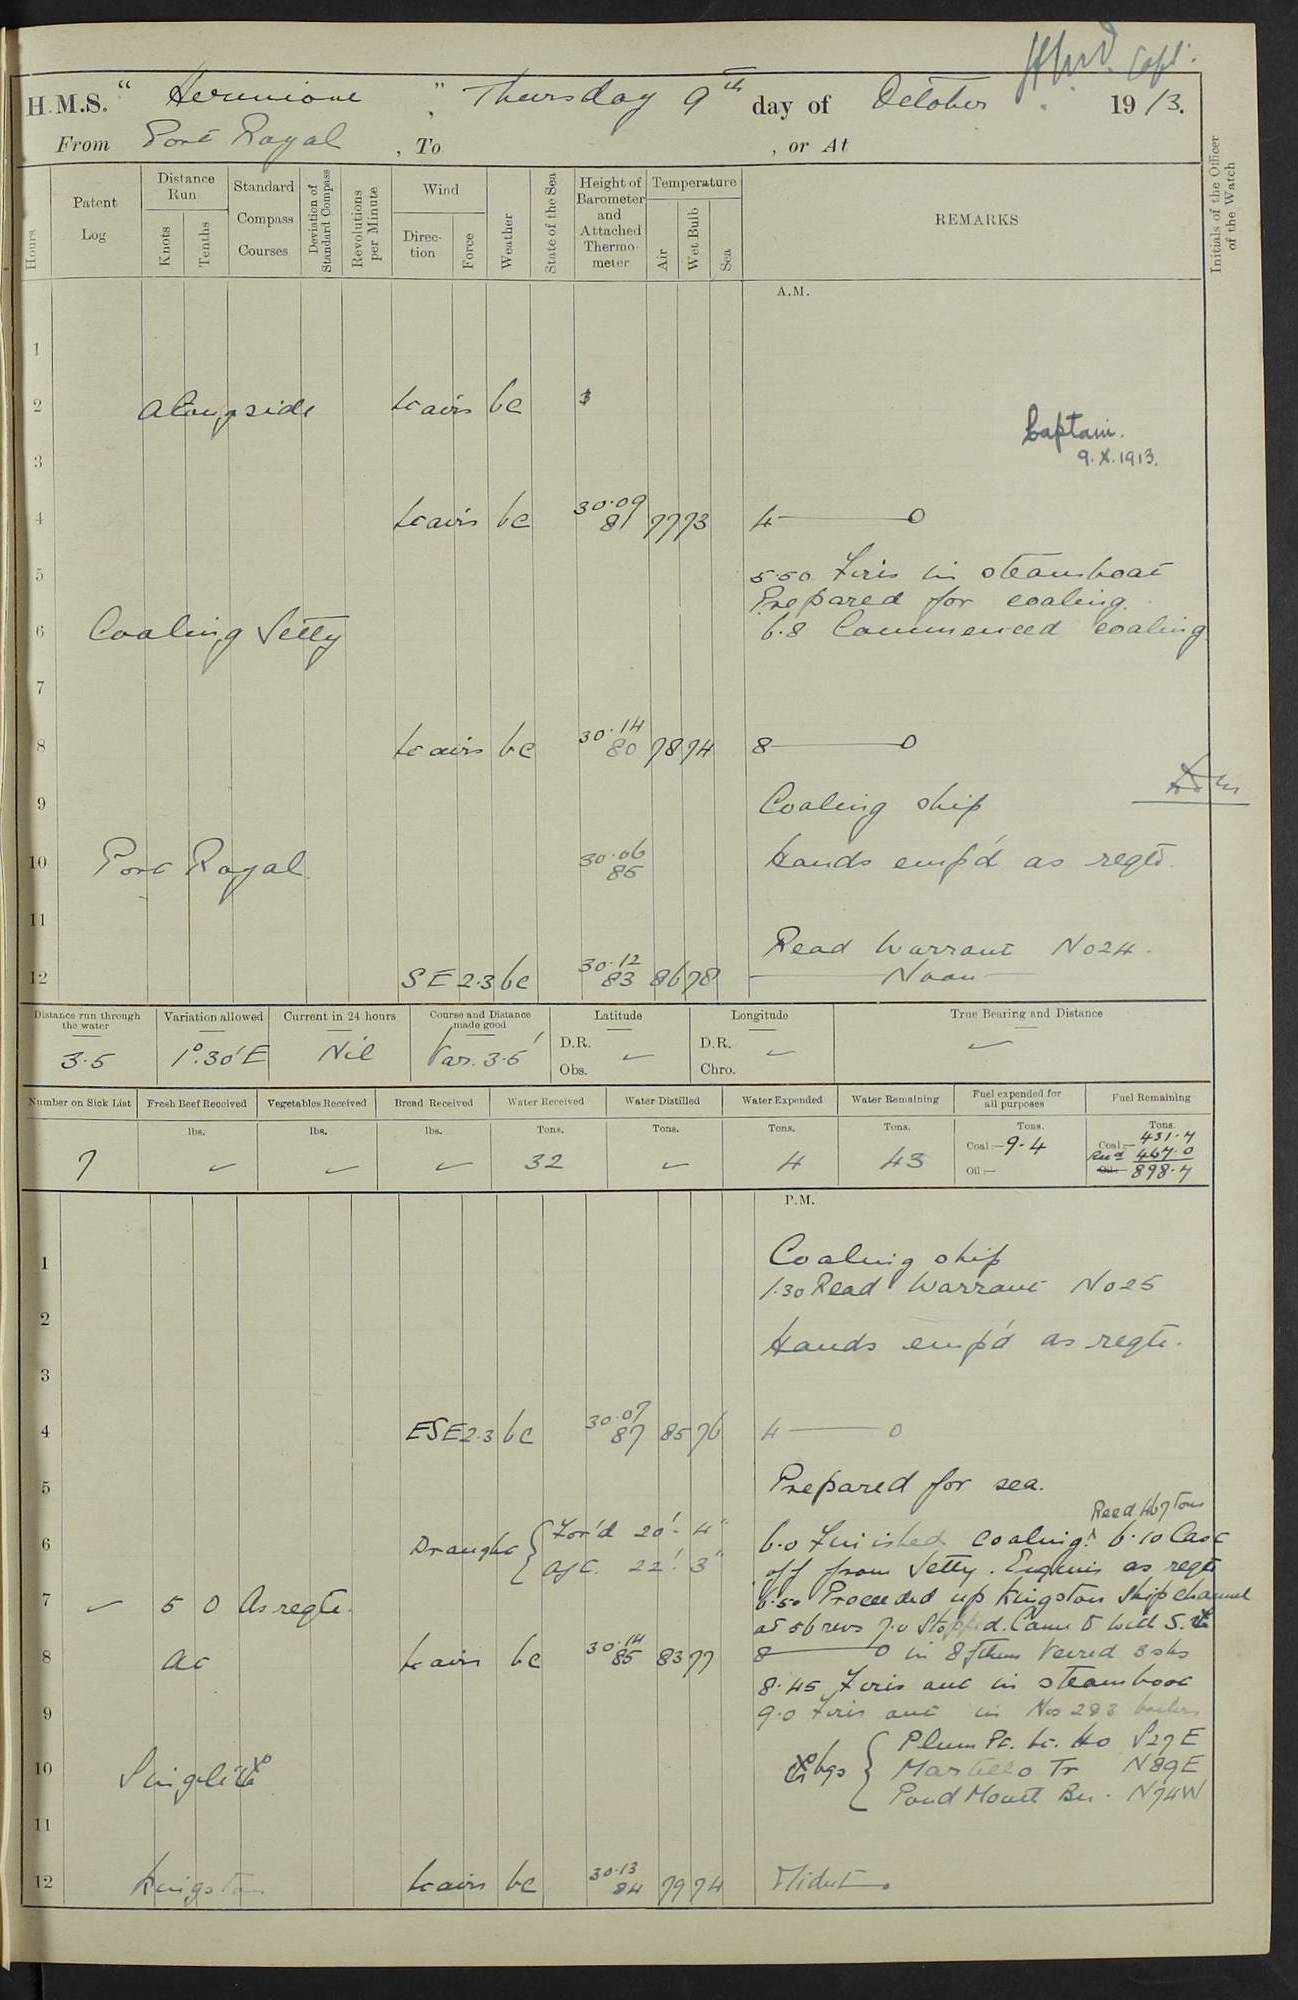 Capt.
H.M.S. "Hermione", Thursday 9th day of October 1913.
From Port Royal, To , or At
Hours
Patent Log
Distance Run
Knots
Tenths
Standard Compass Courses
Deviation of Standard Compass
Revolutions per Minute
Wind
Direction
Force
Weather
State of the Sea
Height of Barometer and Attached Thermometer
Temperature
Air
Wet Bulb
Sea
REMARKS
Initials of the Officer of the Watch
A.M.
1
2 Alongside Lt airs bc
Captain.
9.X.1913.
3
4 Lt airs bc 30.09 81 77 73 4 ——— 0
5 5.50 Fires in steamboat
Prepared for coaling.
6 Coaling Jetty 6.8 Commenced coaling
7
8 Lt airs bc 30.14 80 78 74 8 ——— 0
9 Coaling ship
10 Port Royal. 30.06 85 Hands emp'd as reqte.
11
Read Warrant No 24.
12 SE 2.3 bc 30.12 83 86 78 Noon
Distance run through the water 3.5
Variation allowed 1°.30' E
Current in 24 hours Nil
Course and Distance made good Var. 3.5'
Latitude D.R. ✓ Obs.
Longitude D.R. ✓ Chro.
True Bearing and Distance ✓
Number on Sick List 7
Fresh Beef Received lbs. ✓
Vegetables Received lbs. ✓
Bread Received lbs. ✓
Water Received Tons. 32
Water Distilled Tons. ✓
Water Expended Tons. 4
Water Remaining Tons. 43
Fuel expended for all purposes Tons. Coal:— 9.4 Oil:—
Fuel Remaining Tons. Coal:— 431.7
Recd 467.0
Oil:— 898.7
P.M.
1 Coaling ship
1.30 Read Warrant No 25
2 Hands emp'd as reqte.
3
4 ESE 2.3 bc 30.07 87 85 76 4 ——— 0
5 Prepared for sea.
Recd 467 tons
6 Draught { For'd 20'. 4" 6.0 Finished coaling. 6.10 Cast
Aft. 22'. 3" off from Jetty. Engines as reqte
7 ✓ 5 0 As reqte. 6.50 Proceeded up Kingston Ship channel
at 56 revs 7.0 Stopped. Came to with S.
8 At Lt airs bc 30.14 85 83 77 8 ——— 0 in 8 fthms Veered 3 shs
8.45 Fires out in steamboat
9 9.0 Fires out in Nos 2 & 3 boilers
Plum Pt. Lt. Ho S27E
10 Single bgs { Martello Tr N89E
Pond Mount Bn. N74W
11
12 Kingston Lt airs bc 30.13 84 79 74 Midnt.